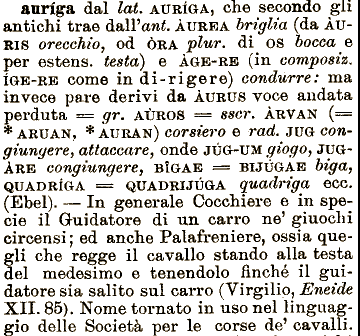 auríga dal lat. AURÍGA, che secondo gli
antichi trae dall'ant. ÀUREA briglia (da ÀU-
RIS orecchio, od ÒRA plur. di os bocca e
per estens. testa) e ÀGE-RE (in composiz.
ÍGE-RE come in di-rigere) condurre: ma
invece pare derivi da ÀURUS voce andata
perduta = gr. AÙROS = sscr. ÀRVAN (=
* ARUAN, * AURAN) corsiero e rad. JUG con-
giungere, attaccare, onde JÚG-UM giogo, JUG-
ÀRE congiungere, BÎGAE = BIJÚGAE biga,
QUADRÍGA = QUADRIJÚGA quadriga ecc.
(Ebel). — In generale Cocchiere e in spe-
cie il Guidatore di un carro ne' giuochi
circensi; ed anche Palafreniere, ossia que-
gli che regge il cavallo stando alla testa
del medesimo e tenendolo finché il gui-
datore sia salito sul carro (Virgilio, Eneide
XII. 85). Nome tornato in uso nel linguag-
gio delle Società per le corse de' cavalli.